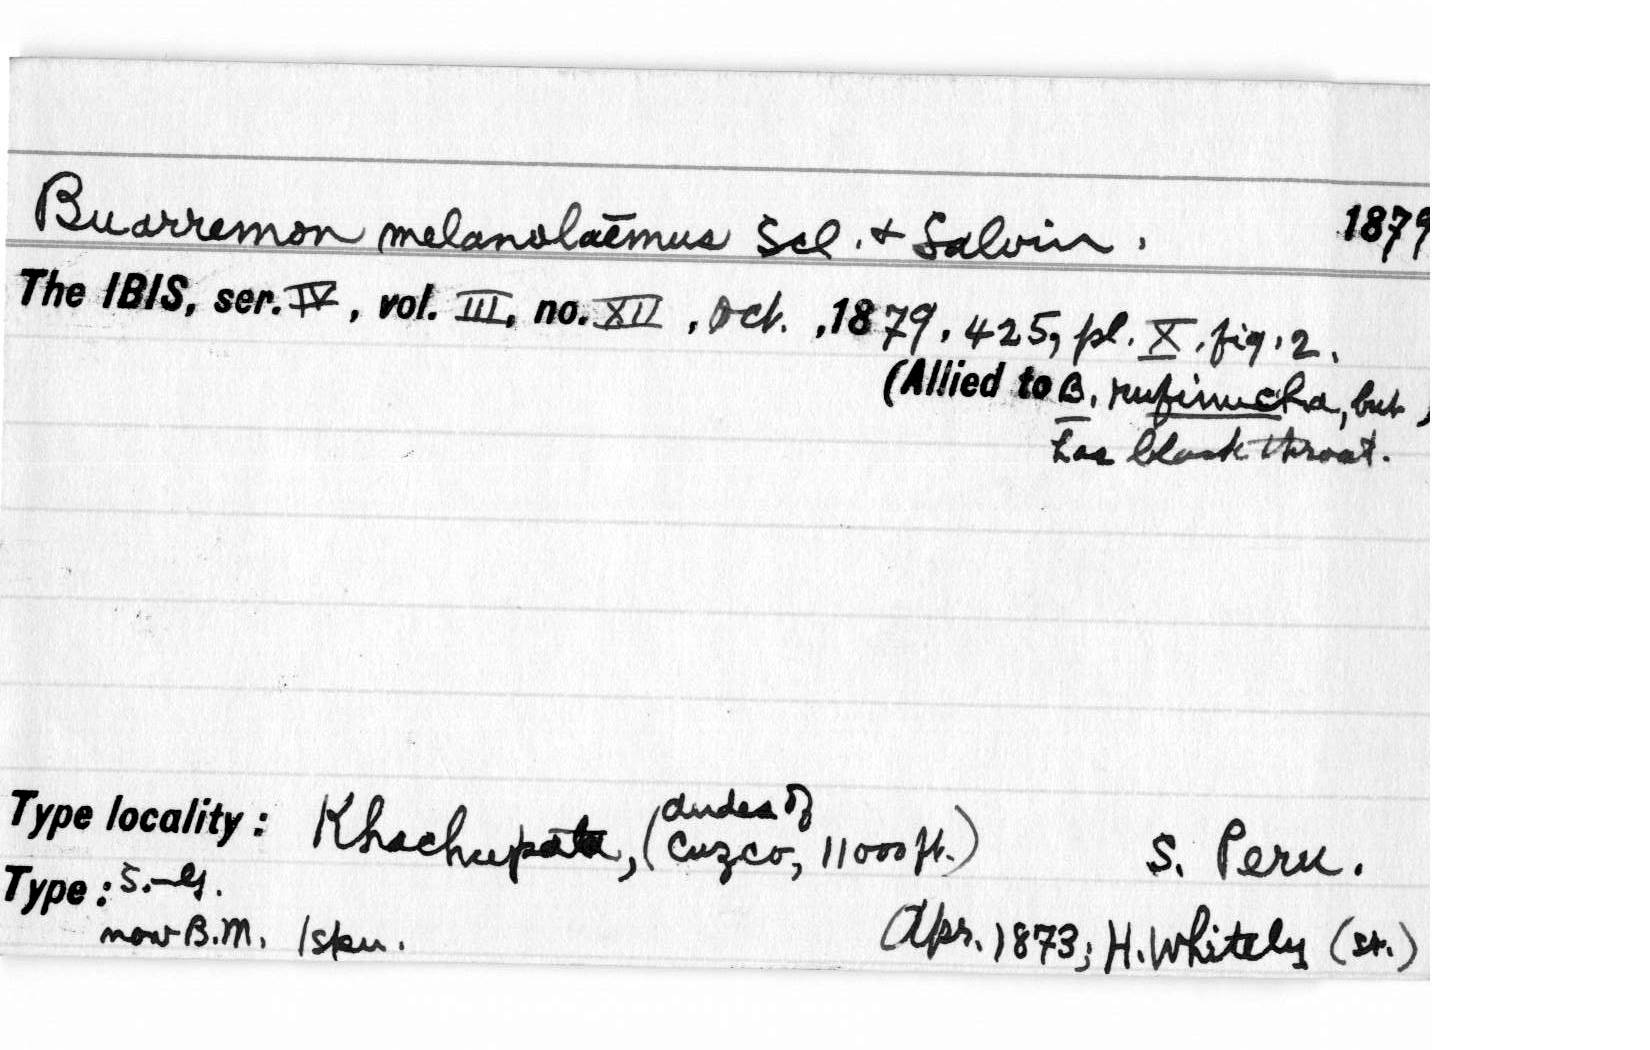 Buarremon melanolaēmus Scl. & Salvin. 1879
The IBIS, ser. IV, vol. III, no. XII, Oct., 1879, 425, pl. X, fig. 2.
(Allied to B. rufinucha, but)
has black throat.
Type locality: Khachupata, (Andes of
Cuzco, 11000 ft.) S. Peru.
Type: S.-G.
now B.M. 1 spn. Apr. 1873; H. Whitely (sr.)